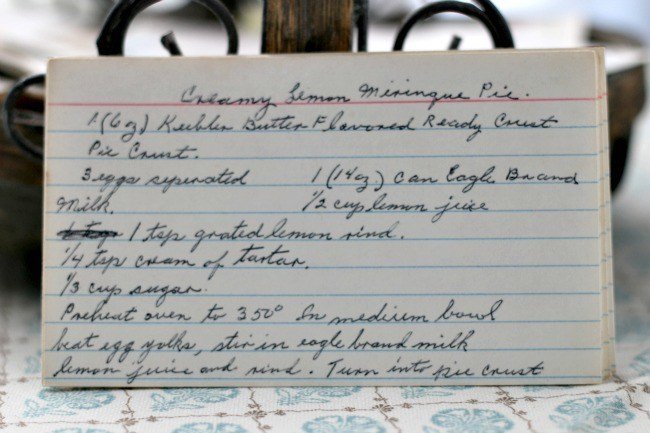 Creamy Lemon Miringue Pie.
1 (6 oz) Keebler Butter Flavored Ready Crust
Pie Crust.
3 eggs seperated 1 (14 oz) can Eagle Brand
Milk. 1/2 cup lemon juice
1 tsp grated lemon rind.
1/4 tsp cream of tartar.
1/3 cup sugar.
Preheat oven to 350° In medium bowl
beat egg yolks, stir in eagle brand milk
lemon juice and rind. Turn into pie crust